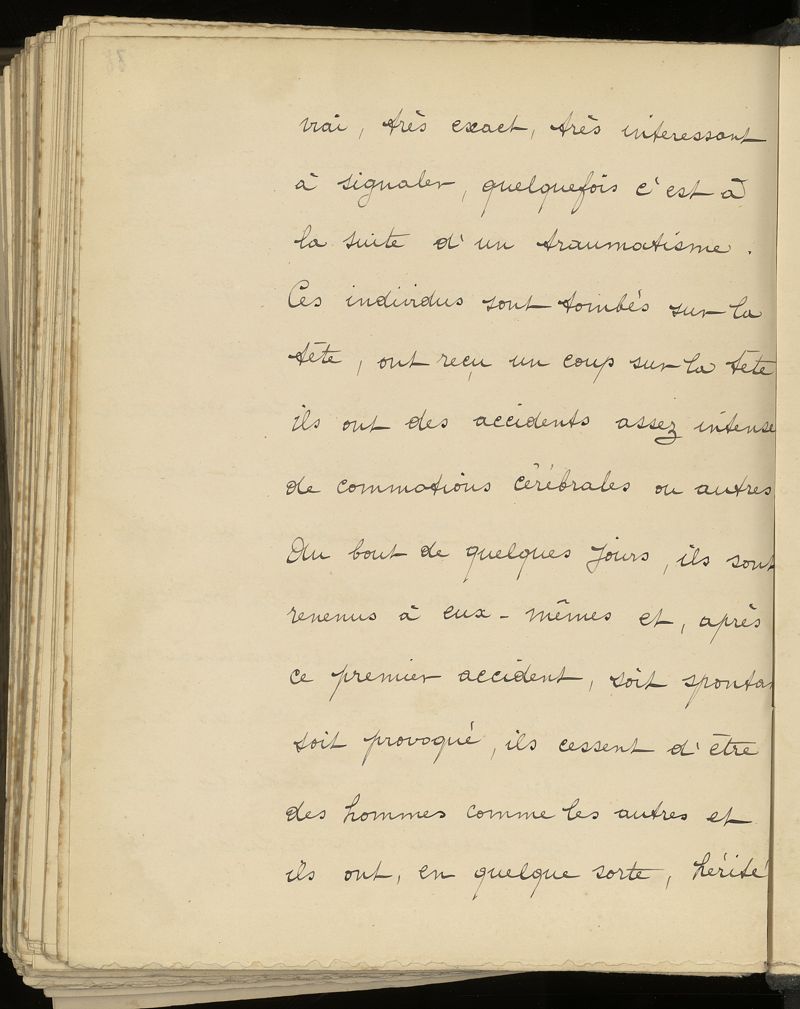 vrai, très exact, très interessant
à signaler, quelquefois c'est à
la suite d'un traumatisme.
Ces individus sont tombés sur la
tête, ont reçu un coup sur la tête
ils ont des accidents assez intense
de commotions cérébrales ou autres
Au bout de quelques jours, ils sont
revenus à eux-mêmes et, après
ce premier accident, soit spontan
soit provoqué, ils cessent d'être
des hommes comme les autres et
ils ont, en quelque sorte, hérité